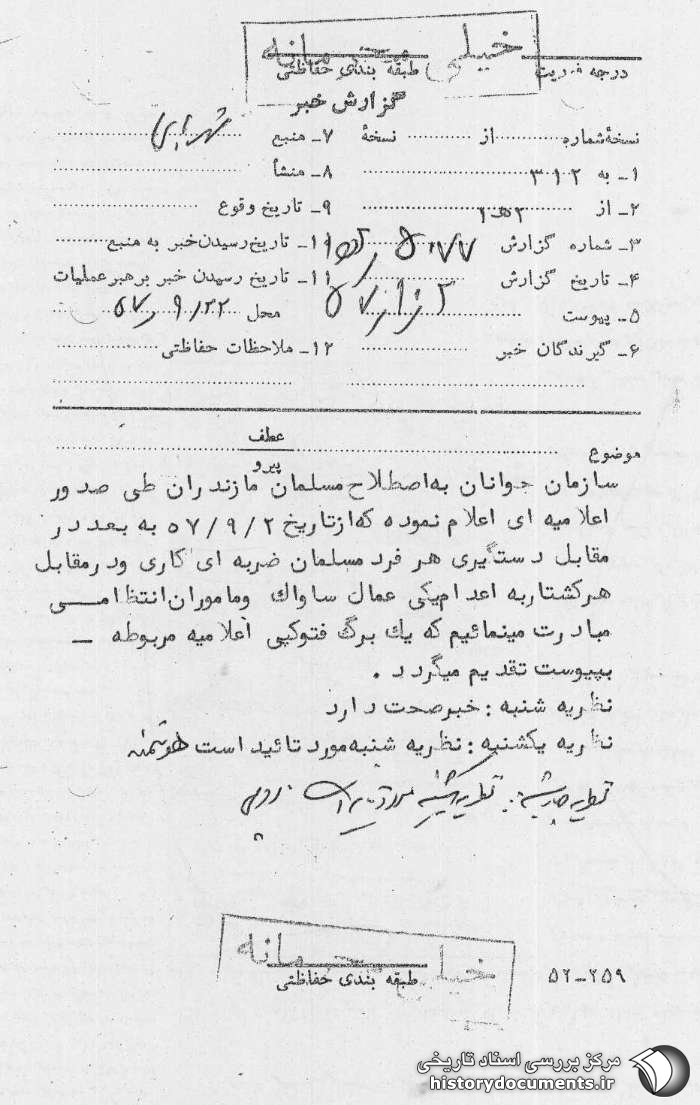 خیلی محرمانه
درجه فوریت
طبقه بندی حفاظتی
گزارش خبر
نسخهٔ شماره از نسخهٔ
۷ـ منبع
۱ـ به ۳۱۲
۸ـ منشأ
۲ـ از
۹ـ تاریخ وقوع
۳ـ شماره گزارش
۱۰ـ تاریخ رسیدن خبر به منبع
۴ـ تاریخ گزارش
۱۱ـ تاریخ رسیدن خبر به رهبر عملیات
۵ـ پیوست
محل ۵۷/۹/۲۲
۶ـ گیرندگان خبر
۱۲ـ ملاحظات حفاظتی
موضوع
عطف
پیرو
سازمان جوانان به اصطلاح مسلمان مازندران طی صدور
اعلامیه ای اعلام نموده که از تاریخ ۵۷/۹/۲ به بعد در
مقابل دستگیری هر فرد مسلمان ضربه ای کاری و در مقابل
هر کشتار به اعدام یکی عمال ساواک و ماموران انتظامی
مبادرت مینمائیم که یک برگ فتوکپی اعلامیه مربوطه ـ
بپیوست تقدیم میگردد .
نظریه شنبه : خبر صحت دارد
نظریه یکشنبه : نظریه شنبه مورد تائید است هوشمند
نظریه چهارشنبه : نظریه یکشنبه مورد تایید است
خیلی محرمانه
طبقه بندی حفاظتی
۵۲ـ۲۵۹
مرکز بررسی اسناد تاریخی
historydocuments.ir